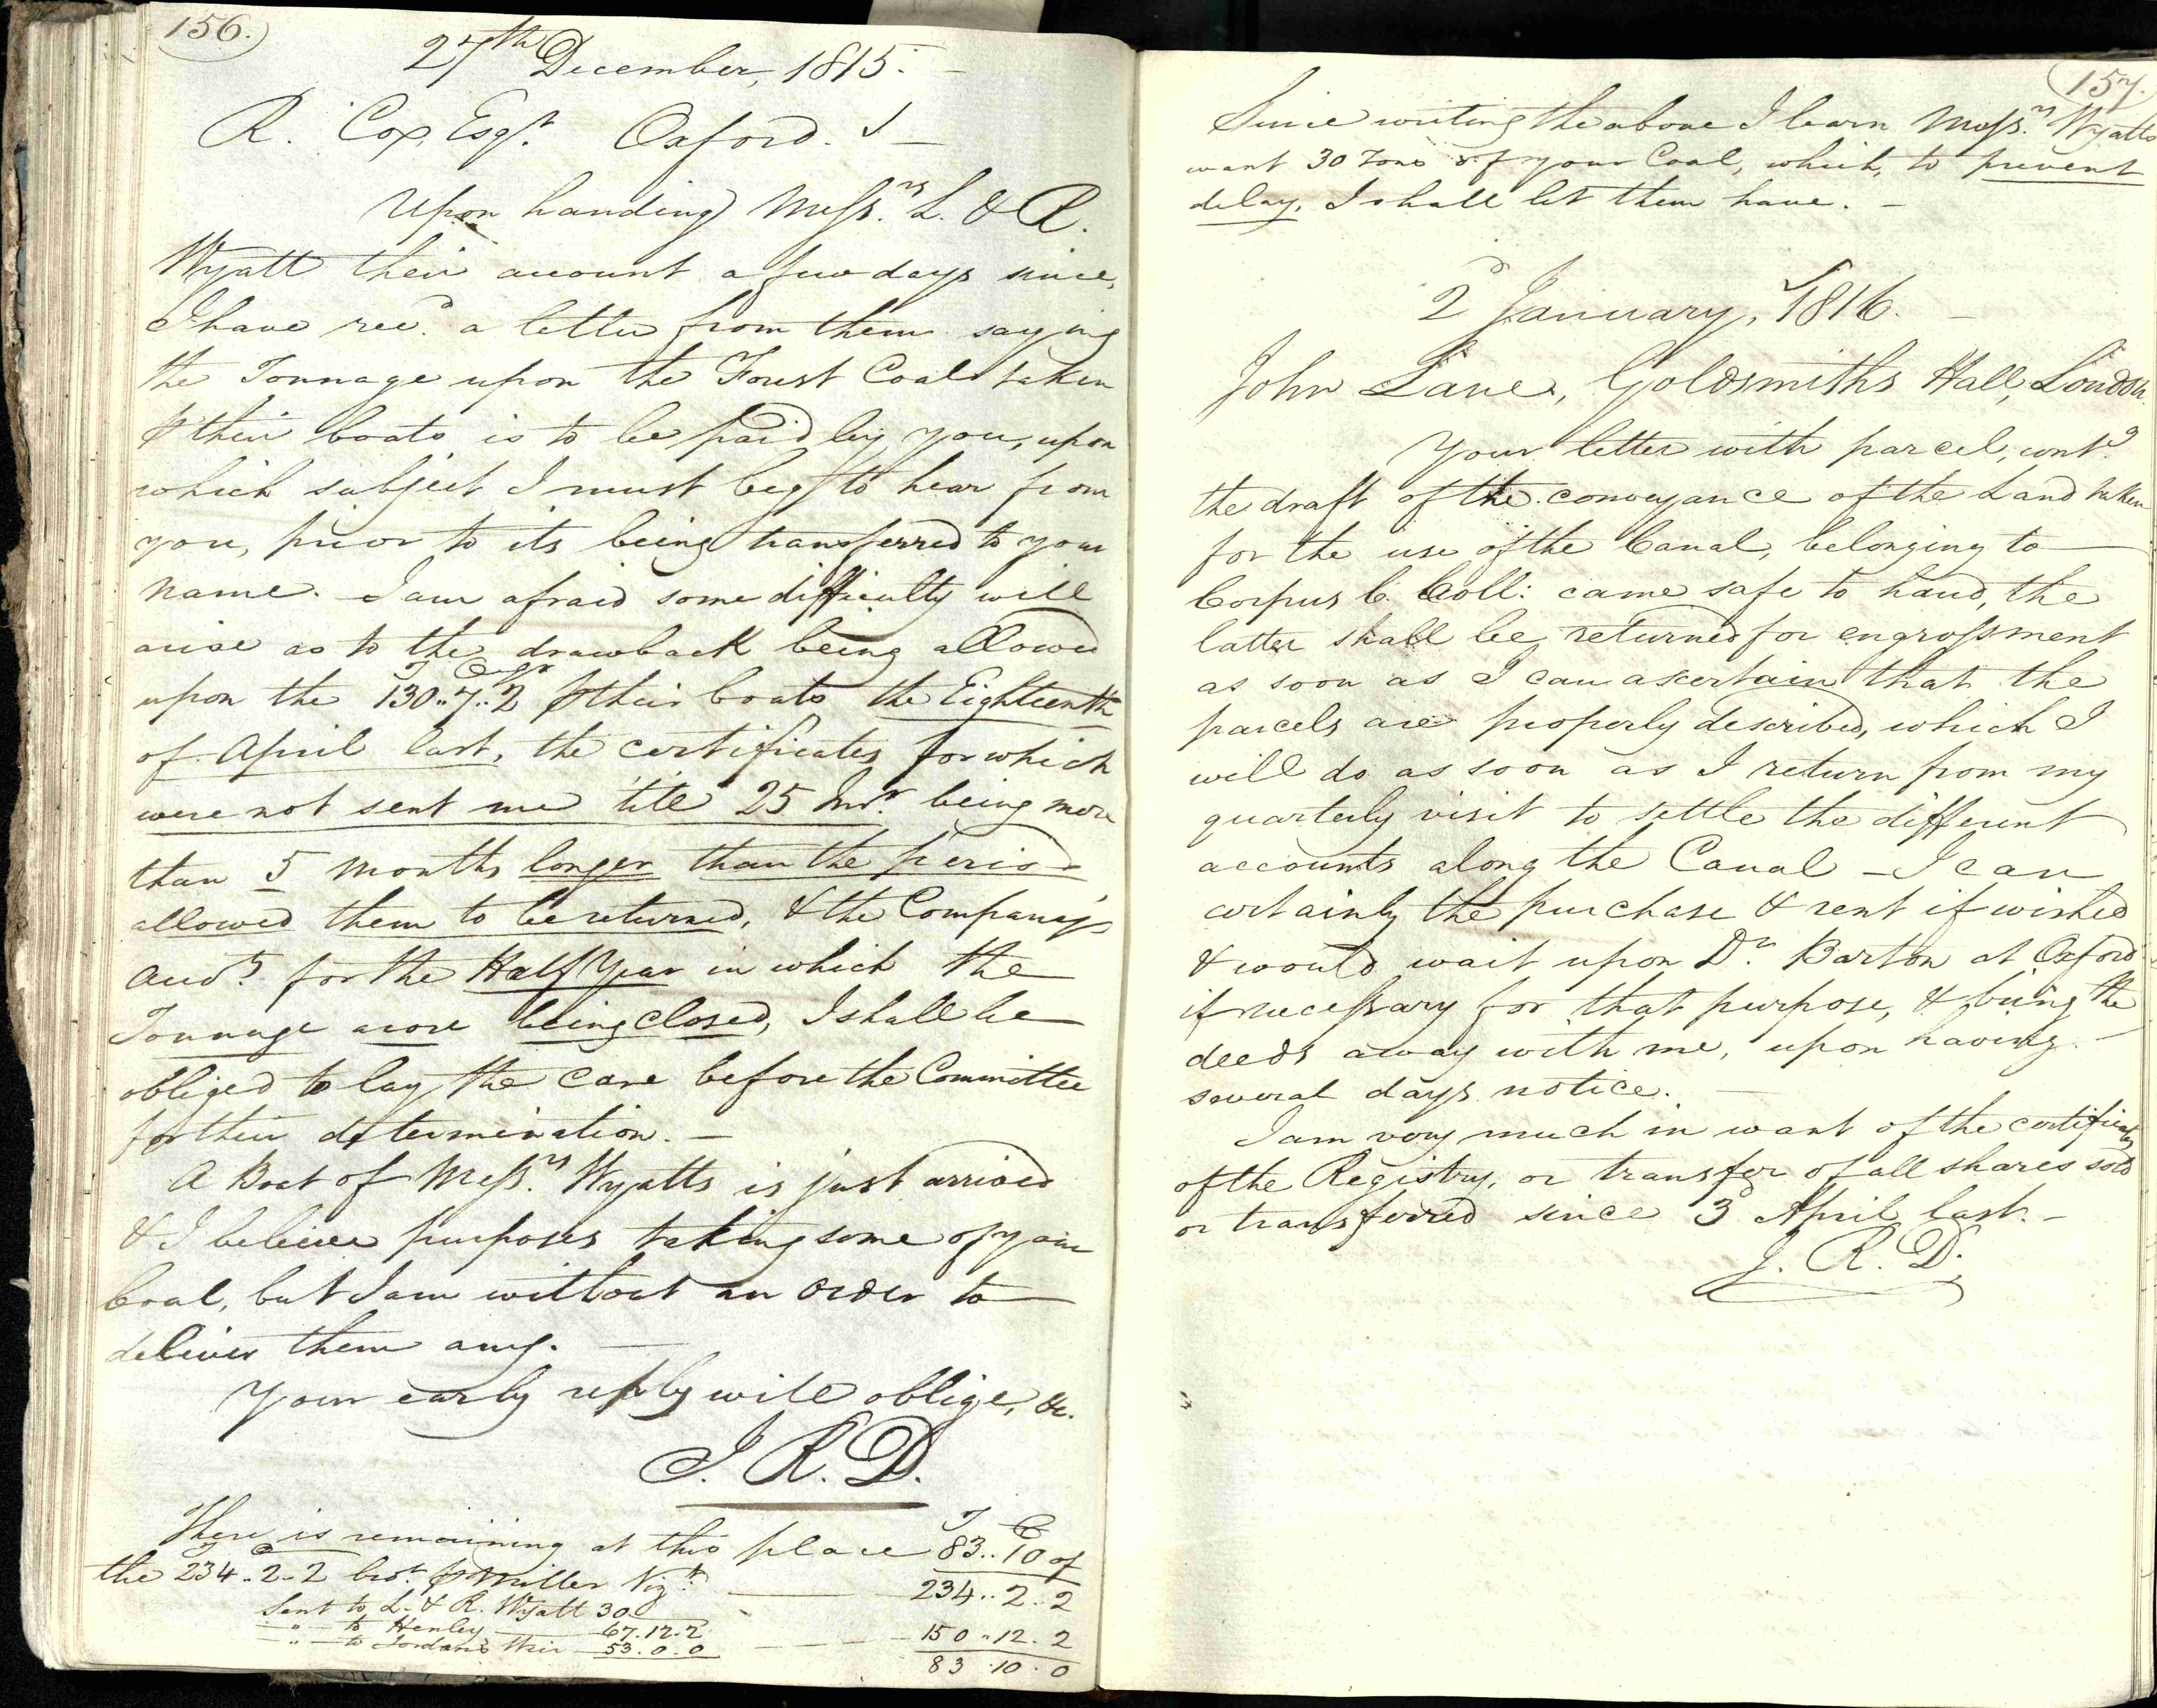 156.
27th December, 1815.
R. Cox, Esqr. Oxford.
Upon handing Messrs. L. & R.
Wyatt their account a few days since,
I have recd. a letter from them saying
the Tonnage upon the Forest Coal taken
⅌ their boats is to be paid by you, upon
which subject I must beg to hear from
you, prior to its being transferred to your
name. I am afraid some difficulty will
arise as to the drawback being allowed
T C qr
upon the 130..7..2 ⅌ their boats the Eighteenth
of April last, the certificates for which
were not sent me till 25 Inst. being more
than 5 months longer than the period
allowed them to be returned, & the Company's
Accts. for the Half Year in which the
Tonnage arose being closed, I shall be
obliged to lay the case before the Committee
for their determination. —
A Boat of Messrs. Wyatts is just arrived
& I believe purposes taking some of your
Coal, but I am without an order to
deliver them any. —
Your early reply will oblige, &c.
J. R. D.
T C
There is remaining at this place 83..10 of
T C
the 234-2-2 brot. ⅌ Miller Vizt. — 234..2.2
Sent to L. & R. Wyatt 30
-"- to Henley — 67.12.2
-"- to Jordan's Weir 53.0.0 — 150..12.2
83.10.0
157.
Since writing the above I learn Messrs. Wyatts
want 30 Tons of your Coal, which, to prevent
delay, I shall let them have. —
2d January, 1816. —
John Lane, Goldsmiths Hall, London.
Your letter with parcel, contg.
the draft of the conveyance of the Land taken
for the use of the Canal, belonging to
Corpus C. Coll: came safe to hand, the
latter shall be returned for engrossment
as soon as I can ascertain that the
parcels are properly described, which I
will do as soon as I return from my
quarterly visit to settle the different
accounts along the Canal — I can
certainly the purchase & rent if wished
& would wait upon Dr. Barton at Oxford
if necessary for that purpose, & bring the
deeds away with me, upon having —
several days notice. —
I am very much in want of the certificates
of the Registry, or transfer of all shares sold
or transferred since 3d April last. —
J. R. D.